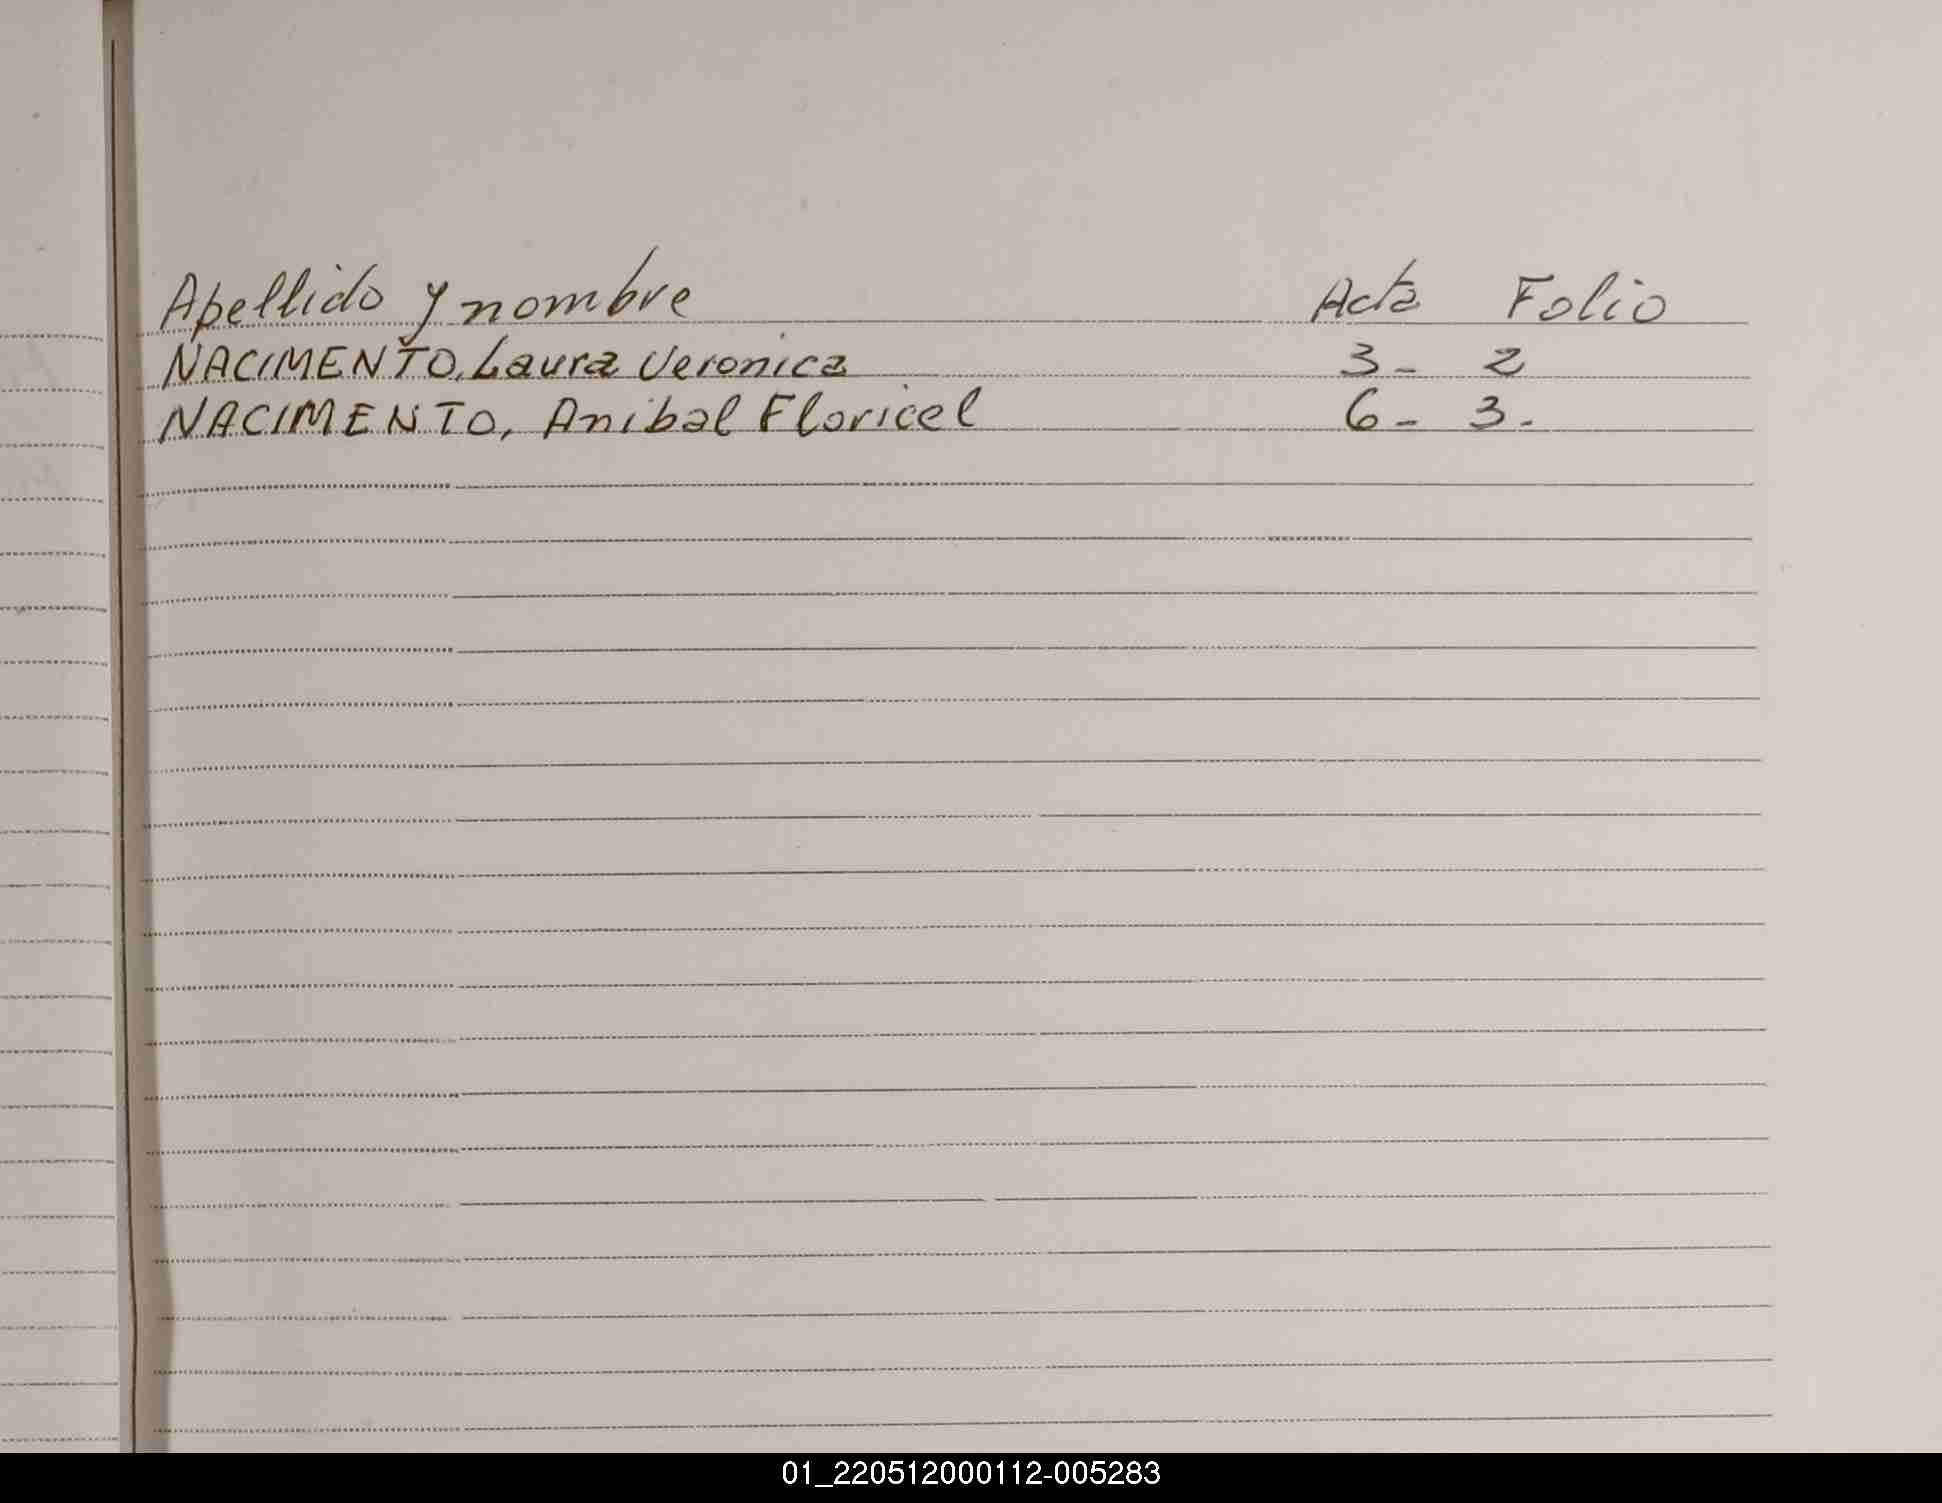 Apellido y nombre Acta Folio
NACIMENTO, Laura Veronica 3- 2
NACIMENTO, Anibal Floricel 6- 3-
01_220512000112-005283